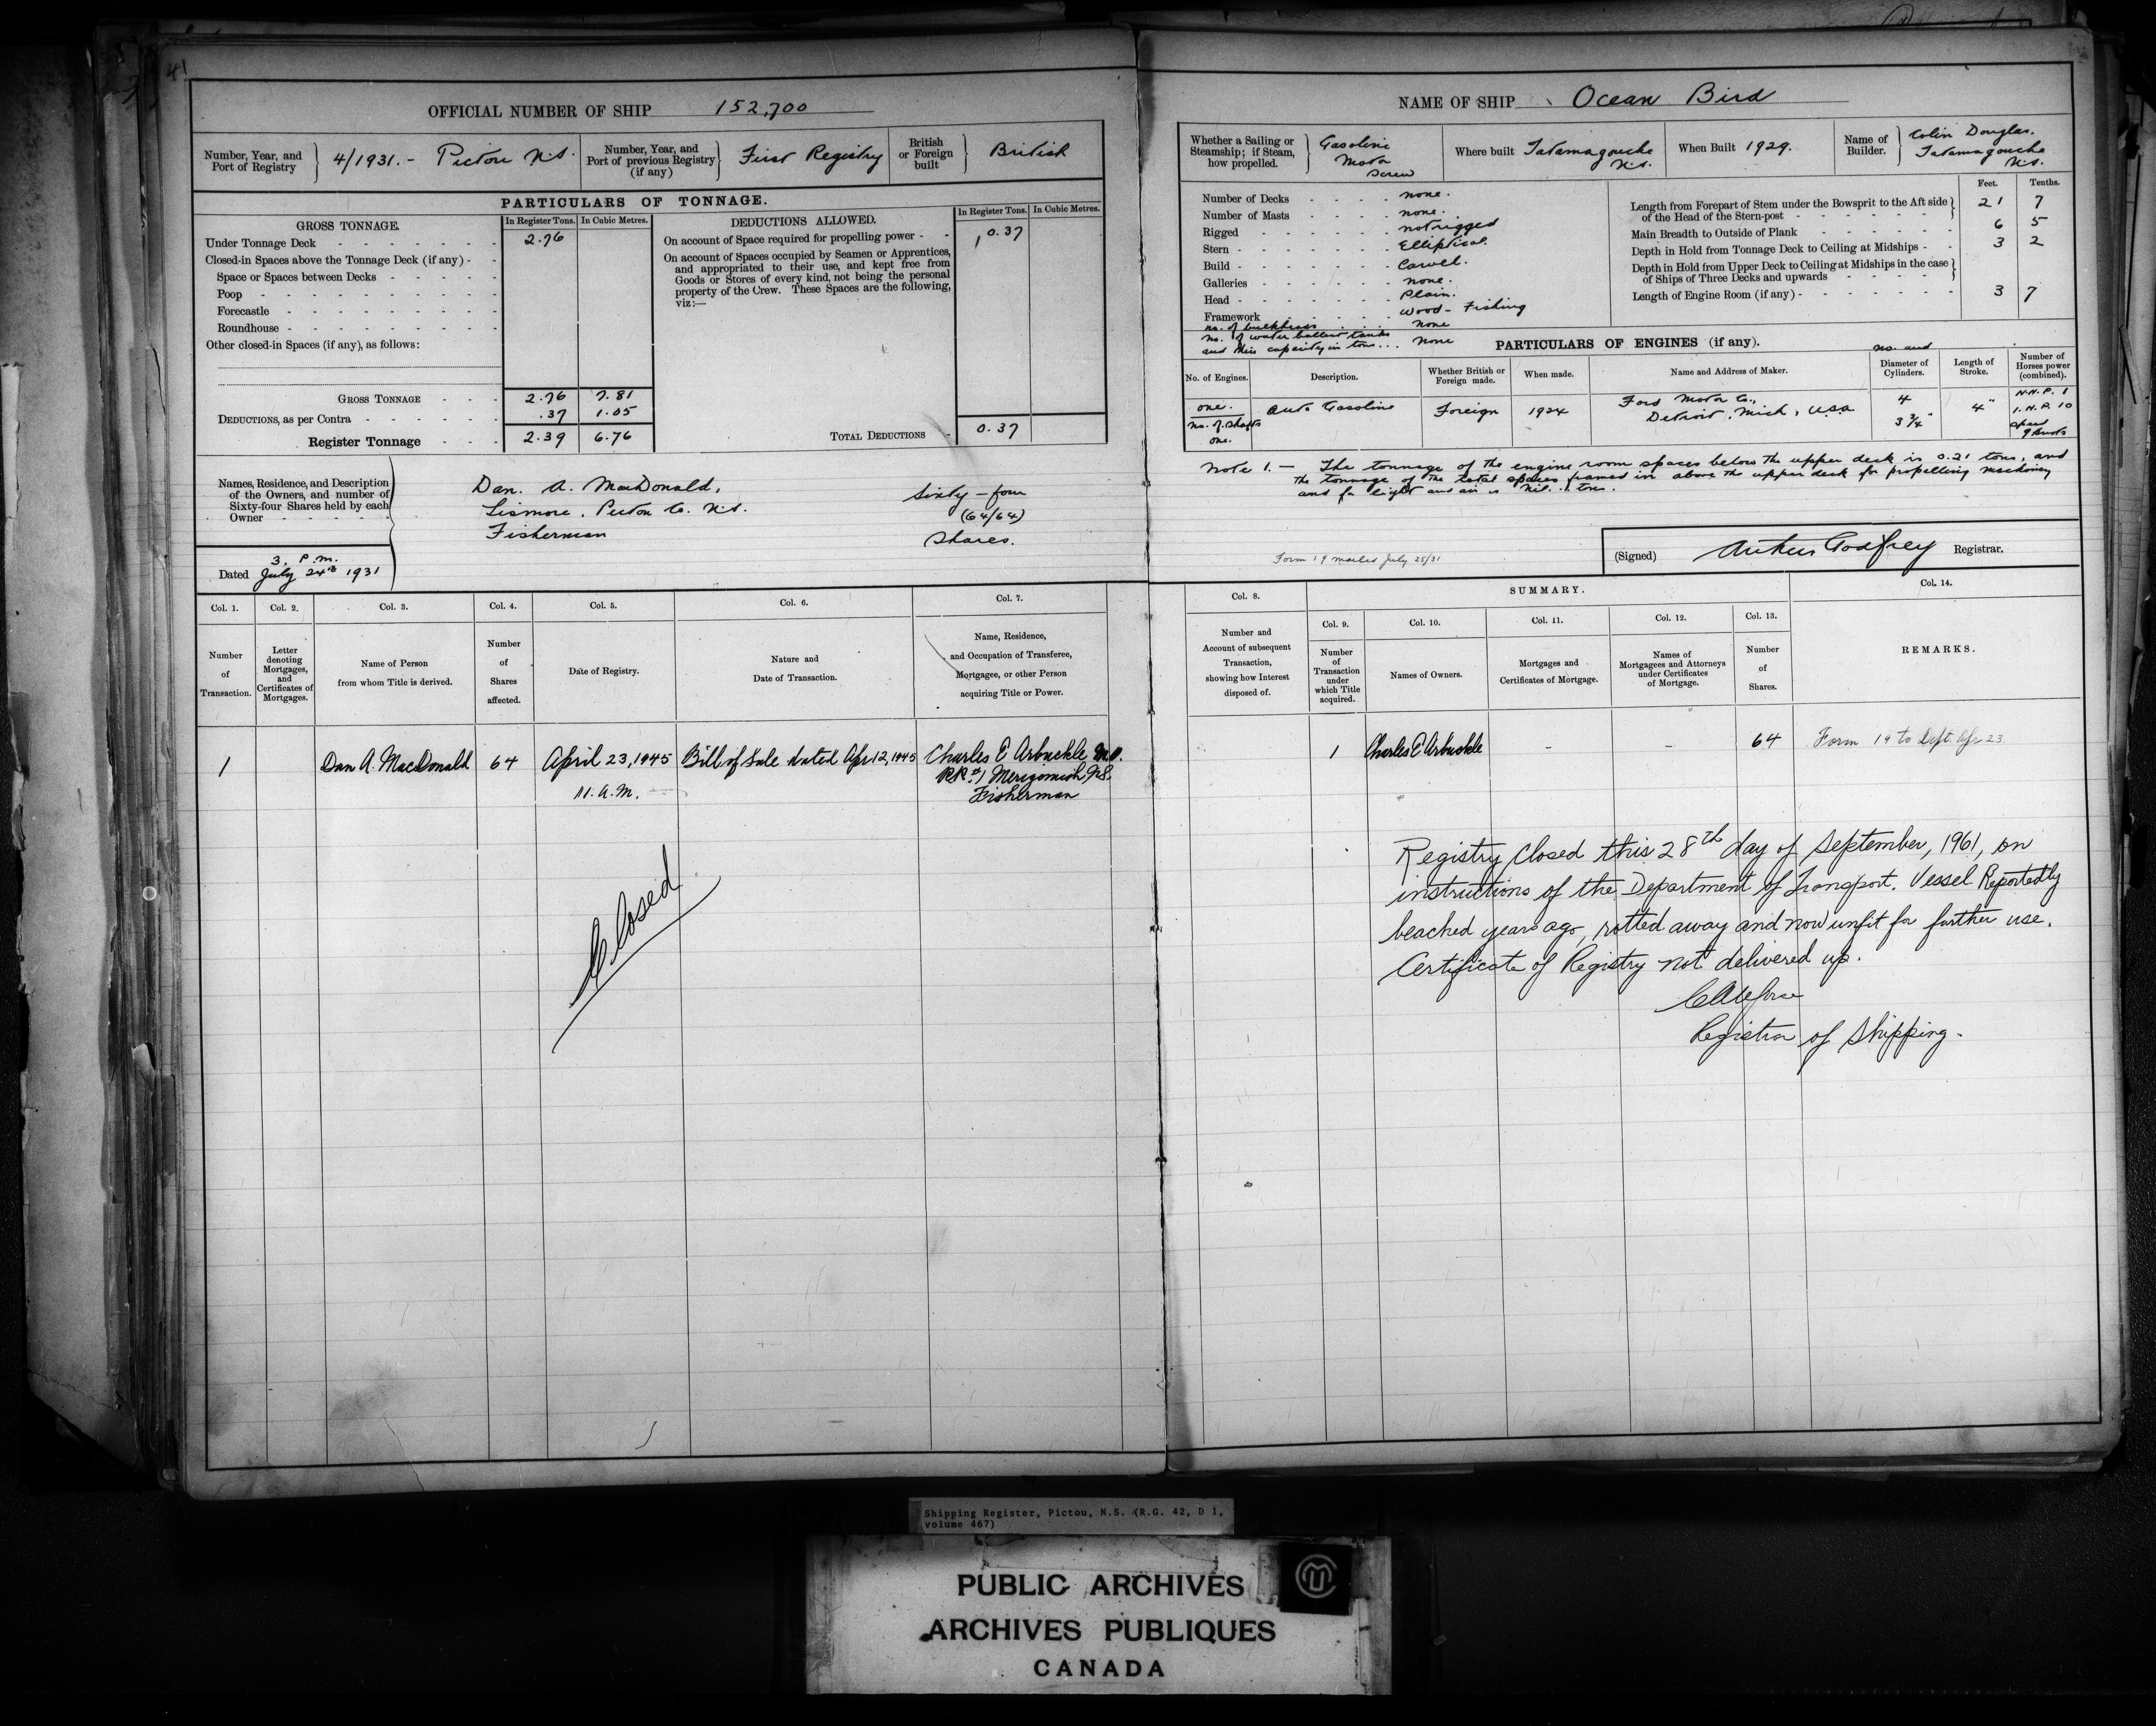 41
OFFICIAL NUMBER OF SHIP 152,700
Number, Year, and Port of Registry } 4/1931. - Pictou N.S.
Number, Year, and Port of previous Registry (if any) } First Registry
British or Foreign built } British
PARTICULARS OF TONNAGE.
GROSS TONNAGE. In Register Tons. In Cubic Metres.
Under Tonnage Deck 2.76
Closed-in Spaces above the Tonnage Deck (if any)
Space or Spaces between Decks
Poop
Forecastle
Roundhouse
Other closed-in Spaces (if any), as follows:
GROSS TONNAGE 2.76 7.81
DEDUCTIONS, as per Contra .37 1.05
Register Tonnage 2.39 6.76
DEDUCTIONS ALLOWED. In Register Tons. In Cubic Metres.
On account of Space required for propelling power 0.37
On account of Spaces occupied by Seamen or Apprentices,
and appropriated to their use, and kept free from
Goods or Stores of every kind, not being the personal
property of the Crew. These Spaces are the following,
viz:—
TOTAL DEDUCTIONS 0.37
Names, Residence, and Description
of the Owners, and number of
Sixty-four Shares held by each
Owner
Dan. A. MacDonald,
Lismore, Pictou Co. N.S.
Fisherman
Sixty-four
(64/64)
Shares.
3. P.m.
Dated July 24th 1931
Col. 1. Col. 2. Col. 3. Col. 4. Col. 5. Col. 6. Col. 7.
Number of Transaction.
Letter denoting Mortgages, and Certificates of Mortgages.
Name of Person from whom Title is derived.
Number of Shares affected.
Date of Registry.
Nature and Date of Transaction.
Name, Residence, and Occupation of Transferee, Mortgagee, or other Person acquiring Title or Power.
1 Dan A. MacDonald 64 April 23, 1945 Bill of Sale dated Apr 12, 1945 Charles E Arbuckle
11. A.M. RR #1 Merigomish N.S.
Fisherman
Closed
NAME OF SHIP Ocean Bird
Whether a Sailing or Steamship; if Steam, how propelled. } Gasoline Motor Screw
Where built Tatamagouche N.S.
When Built 1929.
Name of Builder. } Colin Douglas. Tatamagouche N.S.
Number of Decks none.
Number of Masts none.
Rigged not rigged
Stern Elliptical.
Build Carvel.
Galleries none.
Head Plain.
Framework Wood - Fishing
no. of bulkheads none
no. of water ballast tanks
and their capacity in tons... none
Feet. Tenths.
Length from Forepart of Stem under the Bowsprit to the Aft side of the Head of the Stern-post 21 7
Main Breadth to Outside of Plank 6 5
Depth in Hold from Tonnage Deck to Ceiling at Midships 3 2
Depth in Hold from Upper Deck to Ceiling at Midships in the case of Ships of Three Decks and upwards
Length of Engine Room (if any) 3 7
PARTICULARS OF ENGINES (if any).
No. of Engines. Description. Whether British or Foreign made. When made. Name and Address of Maker. no. and Diameter of Cylinders. Length of Stroke. Number of Horses power (combined).
one. Auto Gasoline Foreign 1924 Ford Motor Co., Detroit, Mich, U.S.A 4 3 3/4" 4" N.H.P. 1
I.H.P. 10
no. of shafts one.
speed 9 knots
Note 1. — The tonnage of the engine room spaces below the upper deck is 0.21 tons, and
the tonnage of the total spaces framed in above the upper deck for propelling machinery
and for light and air is Nil... tons.
Form 19 mailed July 25/31
(Signed) Arthur Godfrey Registrar.
Col. 8. SUMMARY. Col. 14.
Col. 9. Col. 10. Col. 11. Col. 12. Col. 13.
Number and Account of subsequent Transaction, showing how Interest disposed of.
Number of Transaction under which Title acquired.
Names of Owners.
Mortgages and Certificates of Mortgage.
Names of Mortgagees and Attorneys under Certificates of Mortgage.
Number of Shares.
REMARKS.
1 Charles E Arbuckle - - 64 Form 19 to Dept. Apr 23
Registry Closed this 28th day of September, 1961, on
instructions of the Department of Transport. Vessel Reportedly
beached years ago, rotted away and now unfit for further use.
Certificate of Registry not delivered up.
Registrar of Shipping.
Shipping Register, Pictou, N.S. (R.G. 42, D 1,
volume 467)
PUBLIC ARCHIVES
ARCHIVES PUBLIQUES
CANADA